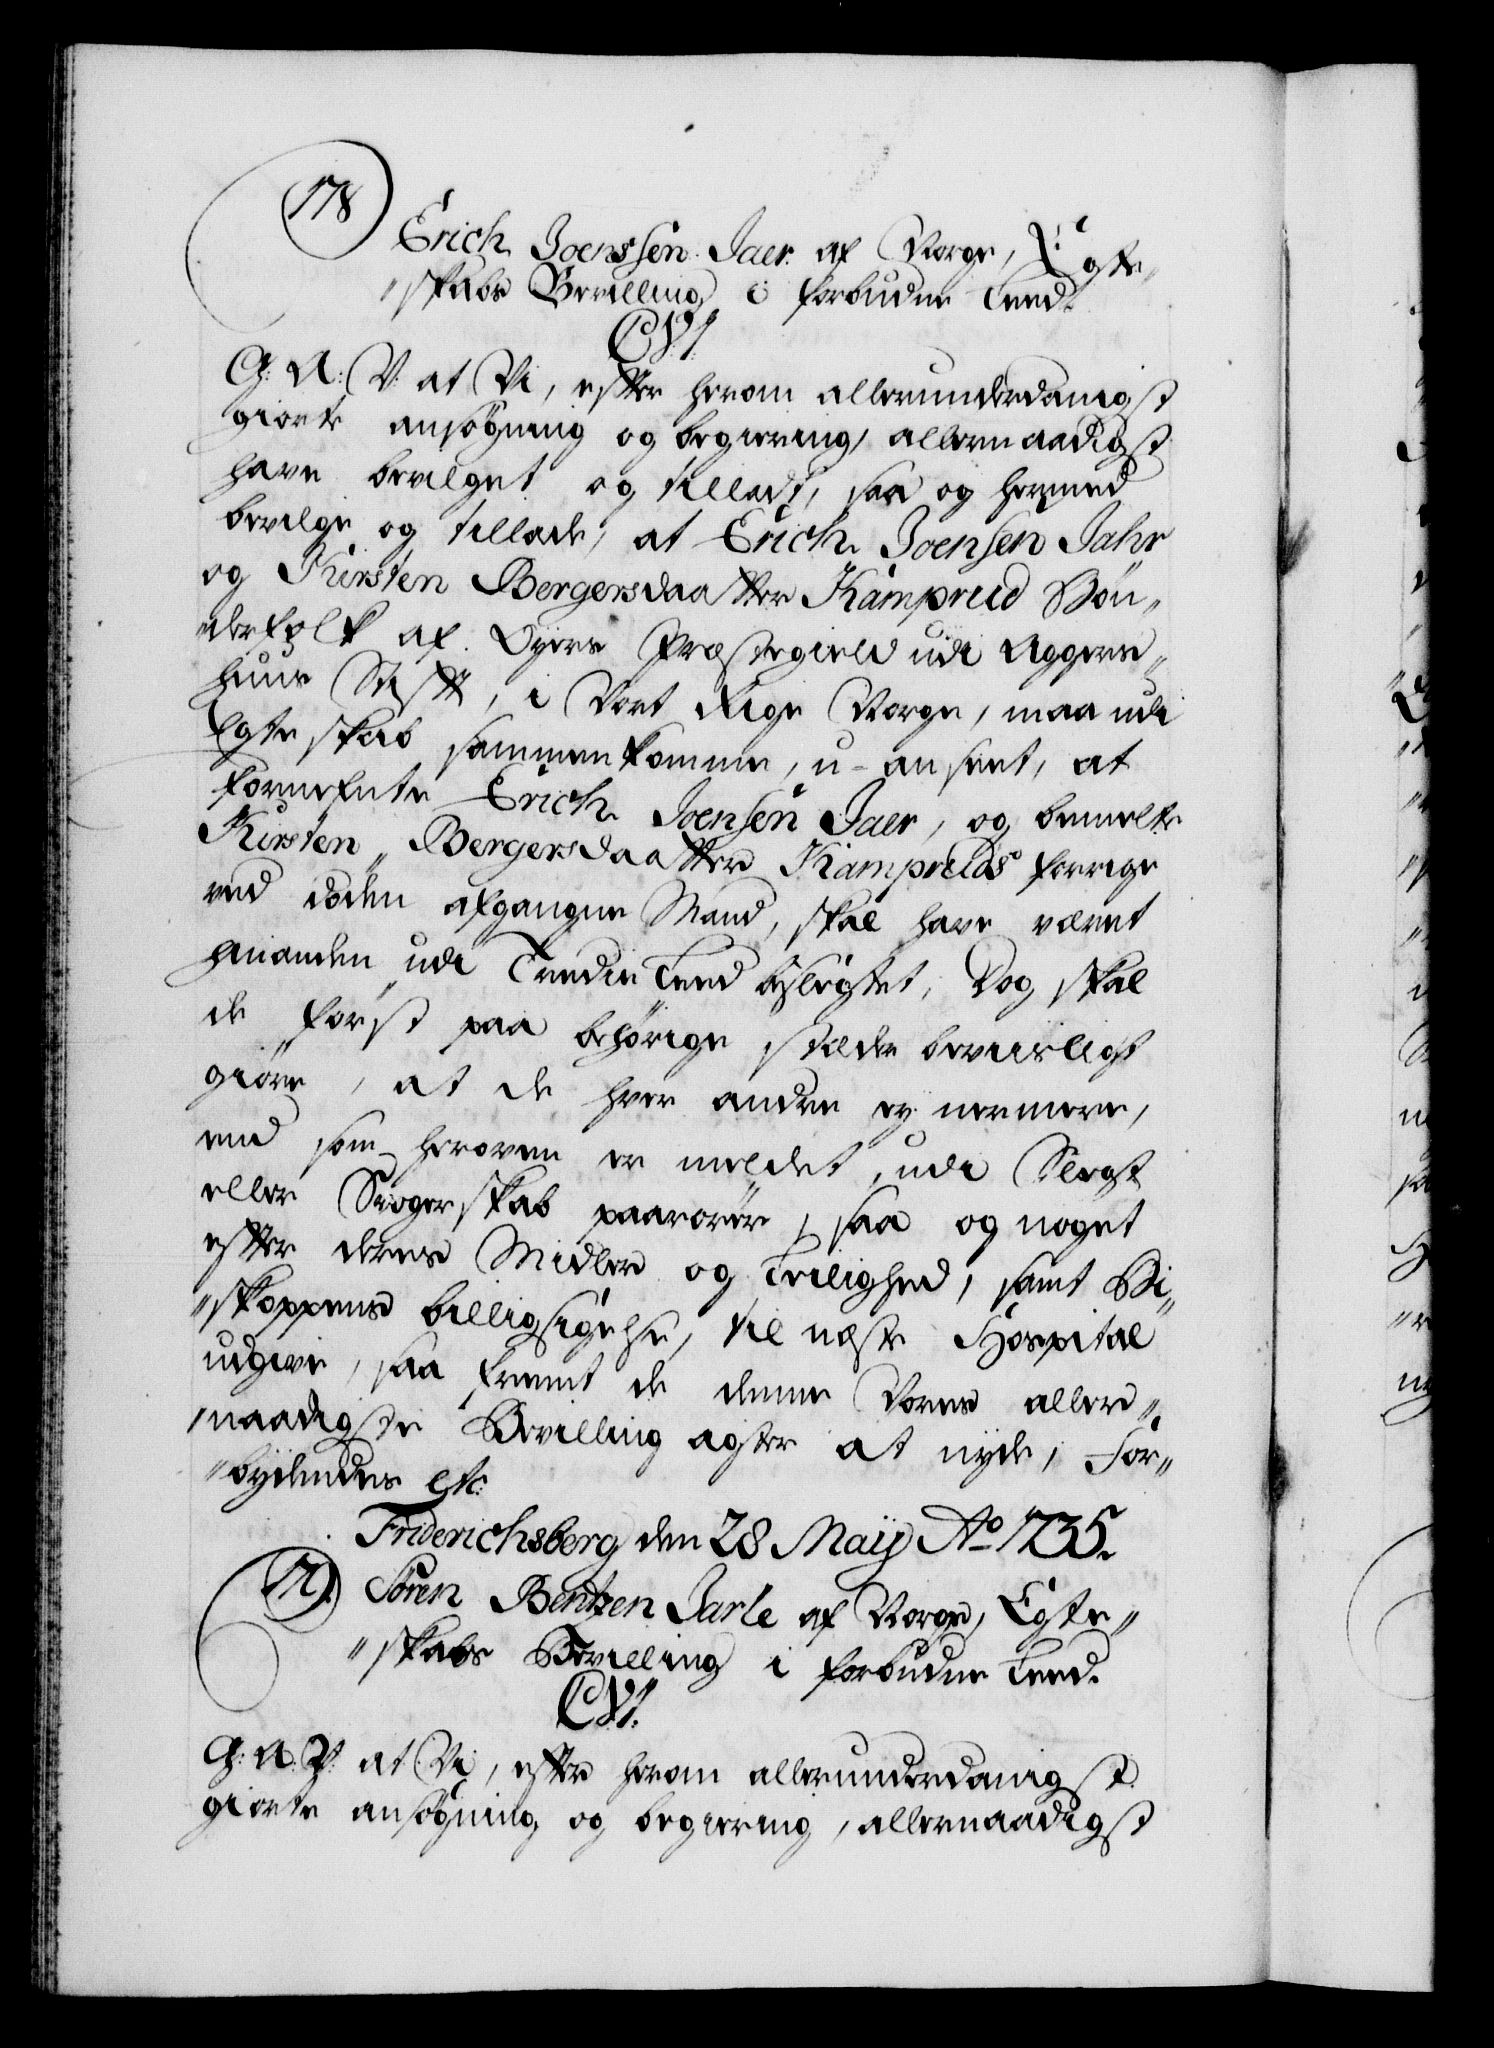 178
Erich Joenssen Jaer af Norge, Egte„
„skabs Bevilling i forbudne Leed.
C VI.
G: A: V: at Vi, efter herom allerunderdanigst
giorte ansøgning og begiering, allernaadigst
have bevilget og tilladt, saa og hermed
bevilge og tillade, at Erich Joensen Jahr
og Kirsten Bergersdaatter Kamprud Bøn„
derfolk af Øyers Præstegield udi Aggers„
huus Stift, i Vort Rige Norge, maa udi
Egteskab sammenkomme, u-anseet, at
fornefnte Erich Joensen Jaer, og bemelte
Kirsten Bergersdaatter Kampruds forrige
ved døden afgangne Mand, skal have været
hinanden udi Tredie Leed beslægtet, Dog skal
de først paa behørige stæder beviisligt
giøre, at de hver andre ey nermere,
end som heroven er meldet, udi Slegt
eller Svogerskab paarører, saa og noget
efter deres Midler og Leilighed, samt Bi„
„skoppens billigsigelse, til neste Hospital
udgive, saa fremt de denne Vores aller„
„naadigste Bevilling agter at nyde, For„
„bydendes etc:
Friderichsberg den 28 Maij Ao 1735.
179. Søren Bentzen Jarle af Norge, Egte„
„skabs Bevilling i forbudne Leed.
C VI.
G: A: V: at Vi, efter herom allerunderdanigst
giorte ansøgning og begiering, allernaadigst